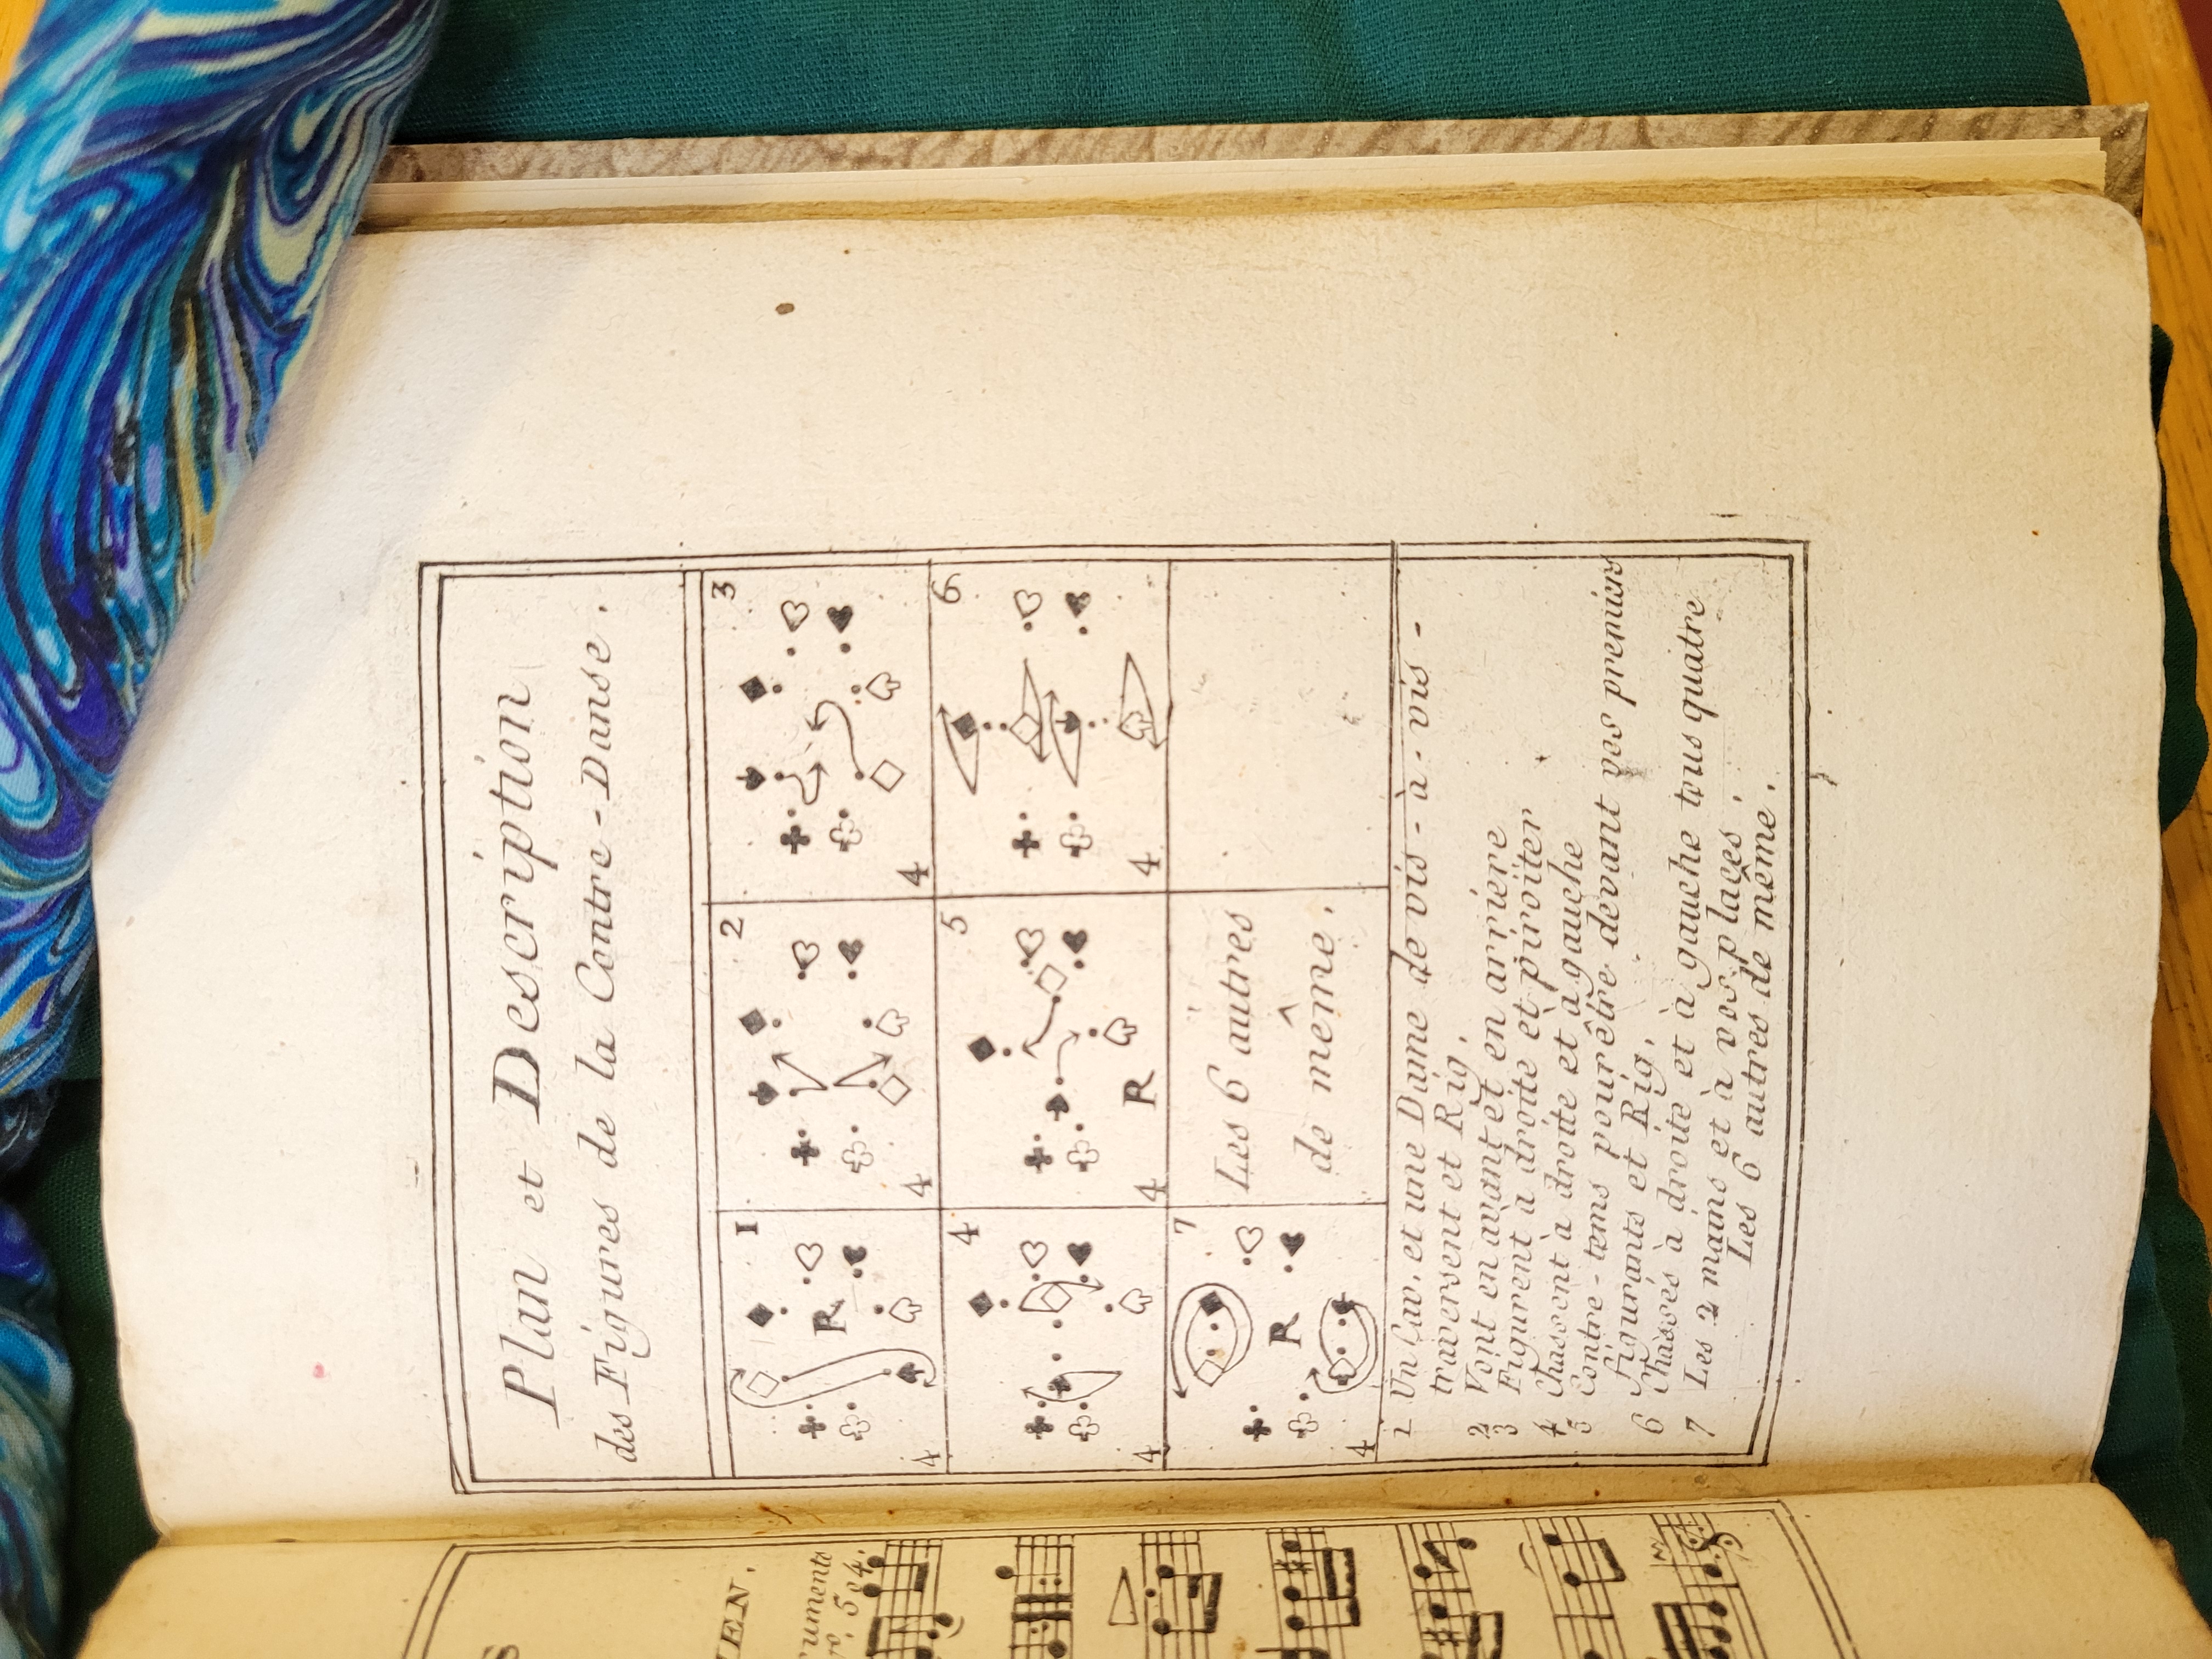 Plan et Description
des Figures de la Contre-Danse.
1
R
4
2
4
3
4
4
4
5
R
4
6
4
7
R
4
Les 6 autres
de même.
1 Un Cav. et une Dame de vis-à-vis-
traversent et Rig.
2 Vont en avant et en arriere
3 Figurent à droite et piroiter
4 Chassent à droite et à gauche
5 Contre-tems pour être devant vos premiers
figurants et Rig.
6 Chassés à droite et à gauche tous quatre
7 Les 2 mains et à vos places.
Les 6 autres de même.
S
EN.
ruments
ro, 5 s 4.